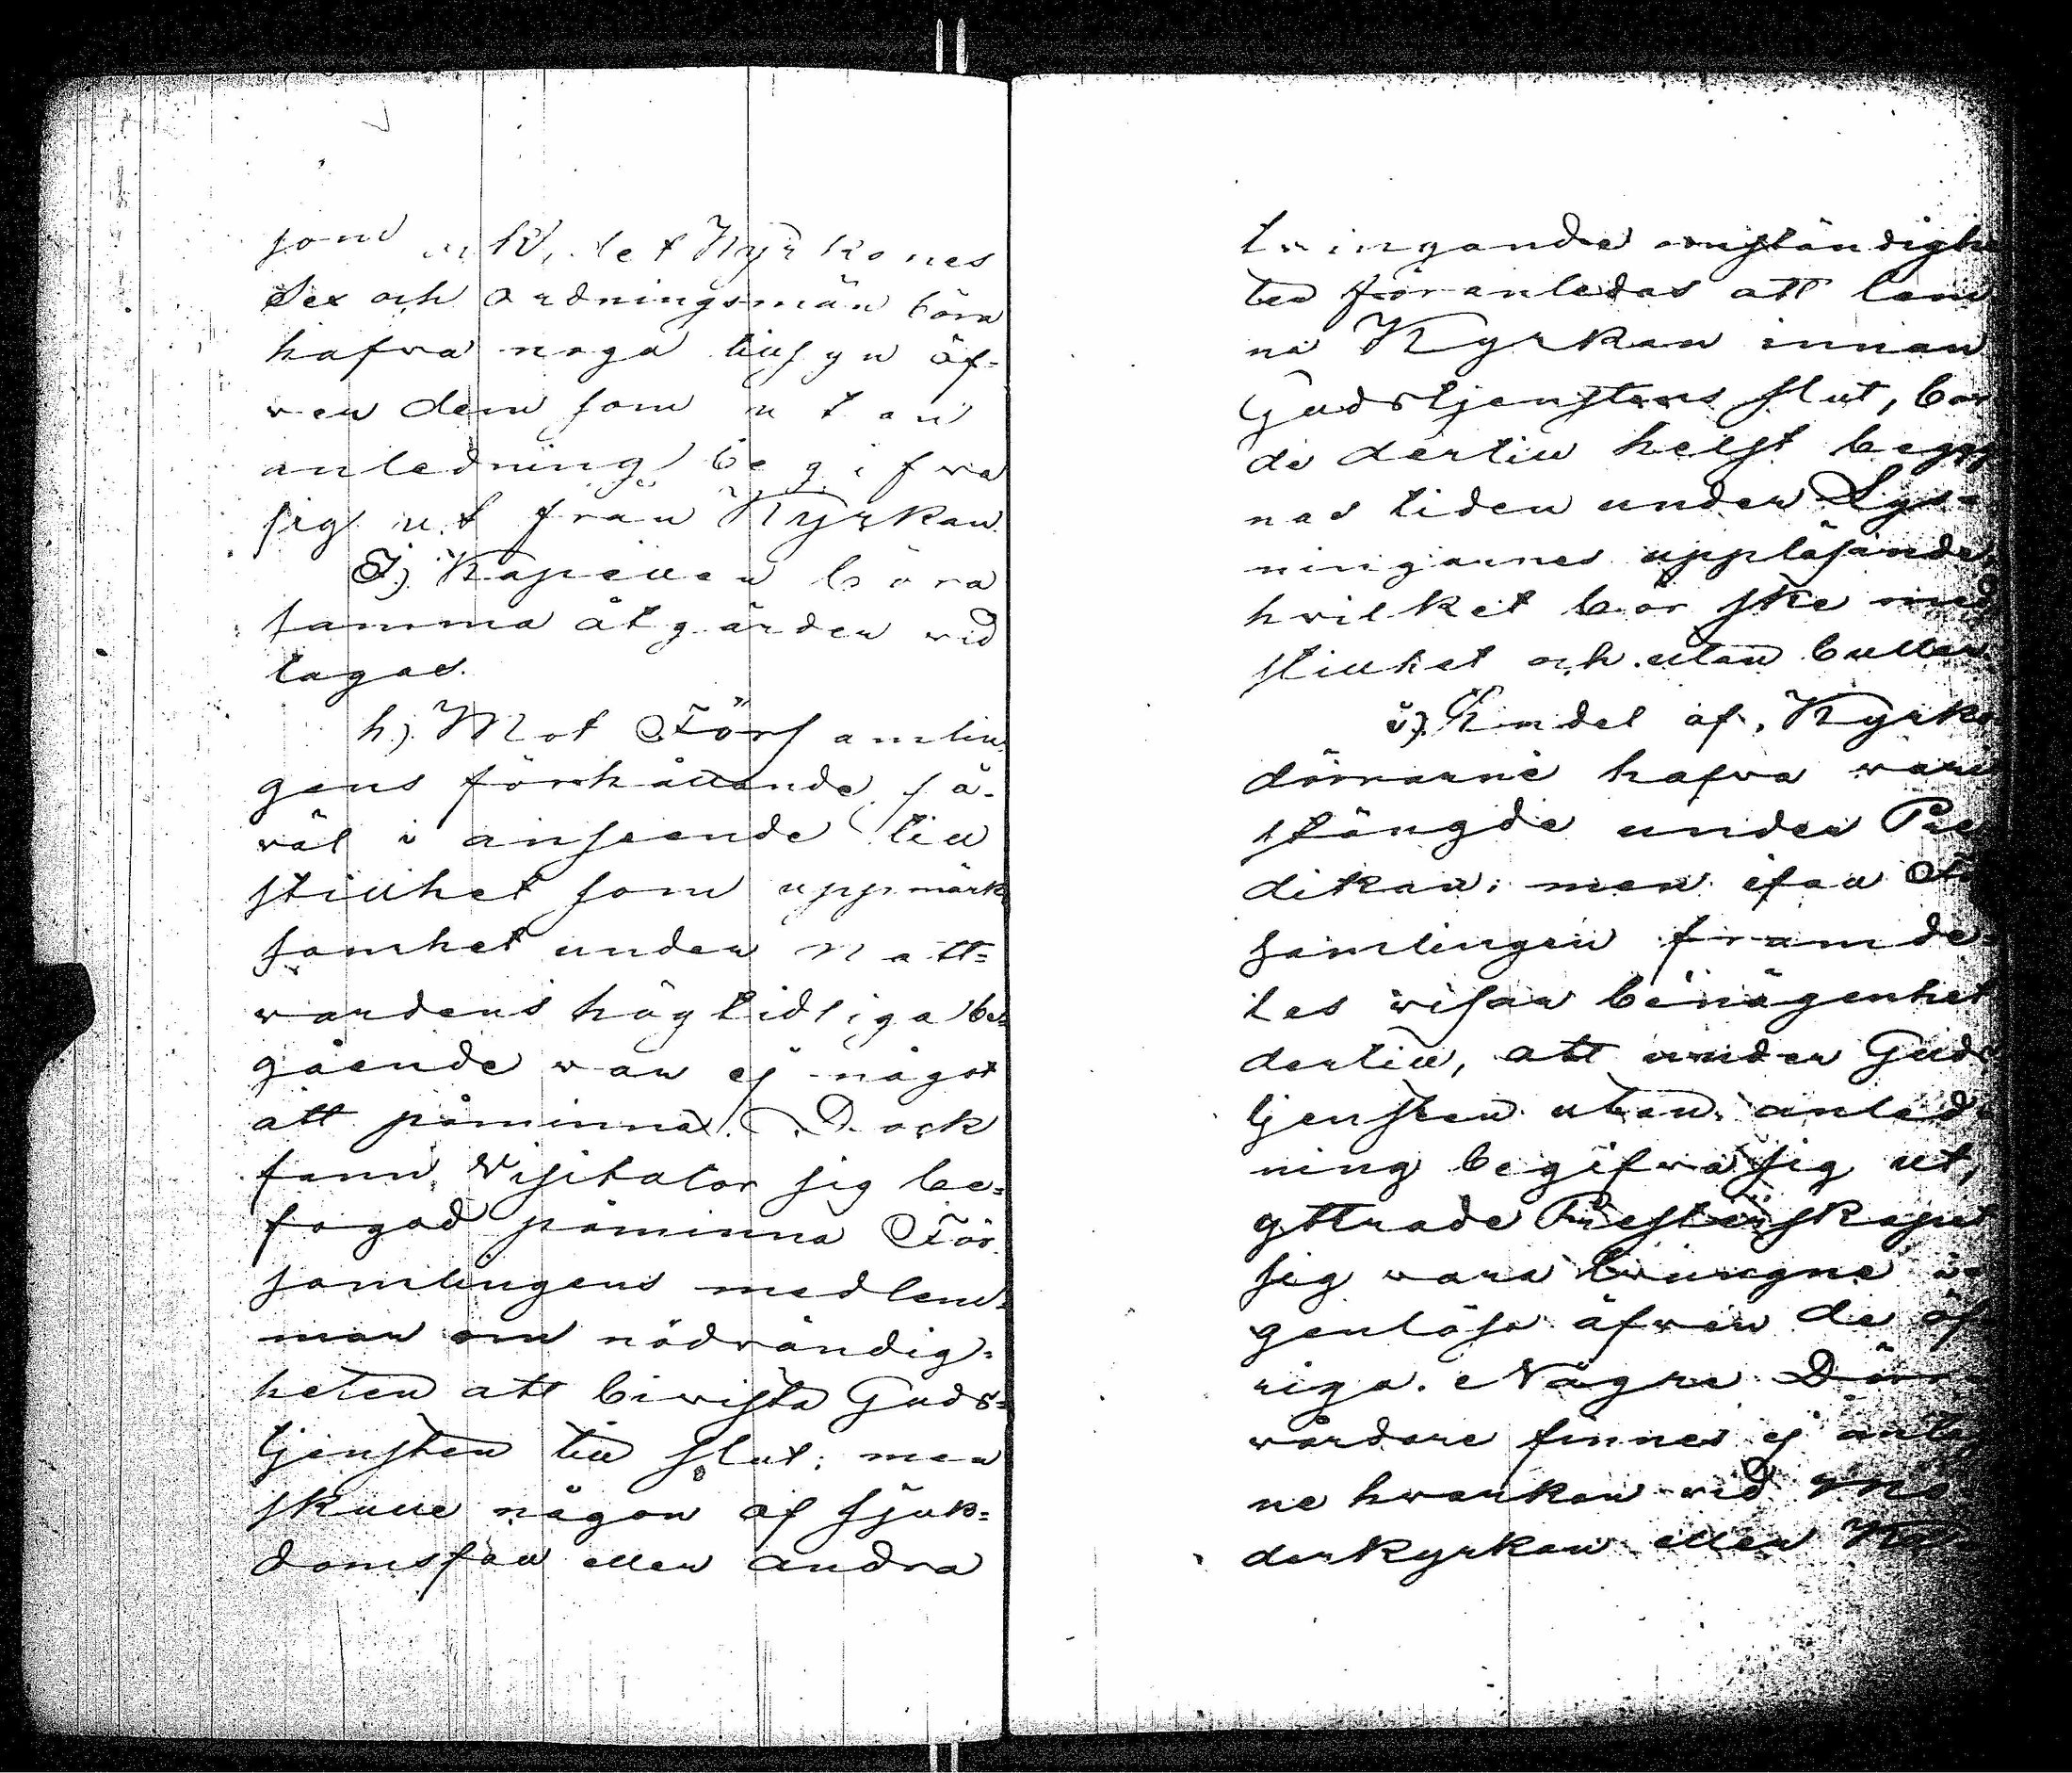 som det Kyrkones
Sex och ordningsmän böra
hafva noga tillsyn öf-
ver dem som utan
anledning begifva
sig ut från Kyrkan.
I) Kapellen böra
samma åtgärder vid
tagas.
h) Mot Församlin
gens förhållande så-
väl i anseende till
stillhet som uppmärk
samhet under natt=
vardens högtidliga be=
gående var ej något
att påminna. Dock
fann Visitator sig be=
fogad påminna För
samlingens medlem=
mar om nödvändig=
heten att bivista Guds=
tjensten till slut; men
skulle någon af sjuk=
domsfall eller andra
tvingande omständighe
ter föranledas att läm
na Kyrkan innan
Gudstjenstens slut, bor
de dertill helst begag
nas tiden under Lys=
ningarnes uppläsande,
hvilket bör ske med
stillhet och utan buller.
i) En del af Kyrko
dörrarne hafva varit
stängde under Pre
dikan; men ifall För
samlingen framde=
les visar benägenhet
dertill, att under Guds
tjensten utan anled=
ning begifva sig ut,
yttrade Presterskapet
sig vara tvungne i=
genlåsa äfven de öf
riga. Några Dörr=
vårdare finnes ej antag
ne hvarken vid Mo
derkyrkan eller Kap